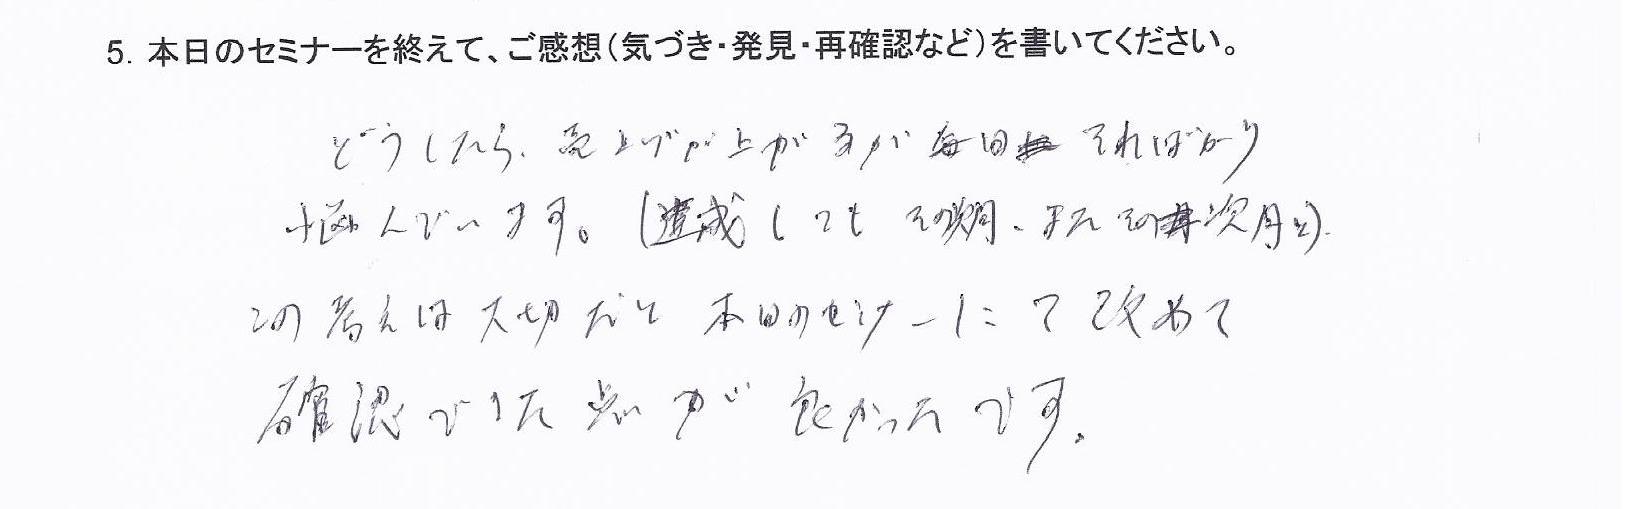 5. 本日のセミナーを終えて、ご感想(気づき・発見・再確認など)を書いてください。
どうしたら、売上げが上がるか毎日 そればかり
悩んでいます。(達成しても その期、また その 次月と)
この考えは大切だと 本日のセミナーにて改めて
確認できた点が 良かったです。